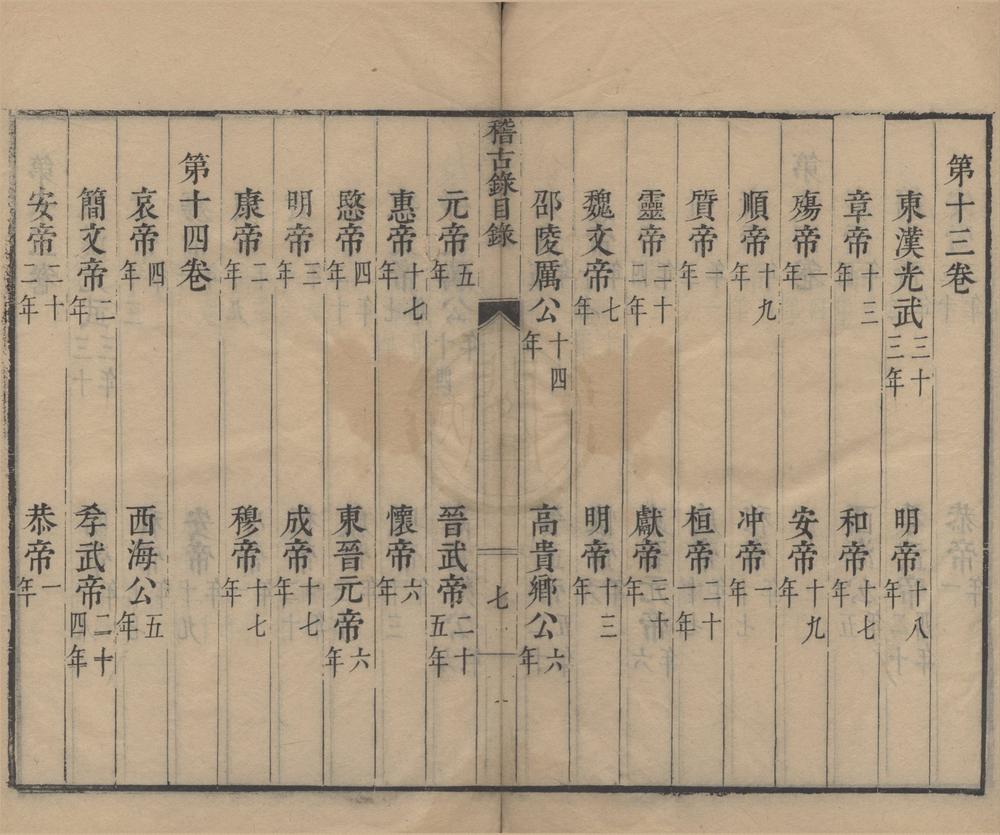 第十三卷
東漢光武三十三年 明帝十八年
章帝十三年 和帝十七年
殤帝一年 安帝十九年
順帝十九年 冲帝一年
質帝一年 桓帝二十一年
靈帝二十四年 獻帝三十年
魏文帝七年 明帝十三年
邵陵厲公十四年 高貴鄉公六年
稽古錄目錄 七
元帝五年 晉武帝二十五年
惠帝十七年 懷帝六年
愍帝四年 東晉元帝六年
明帝三年 成帝十七年
康帝二年 穆帝十七年
第十四卷
哀帝四年 西海公五年
簡文帝二年 孝武帝二十四年
安帝二十一年 恭帝一年